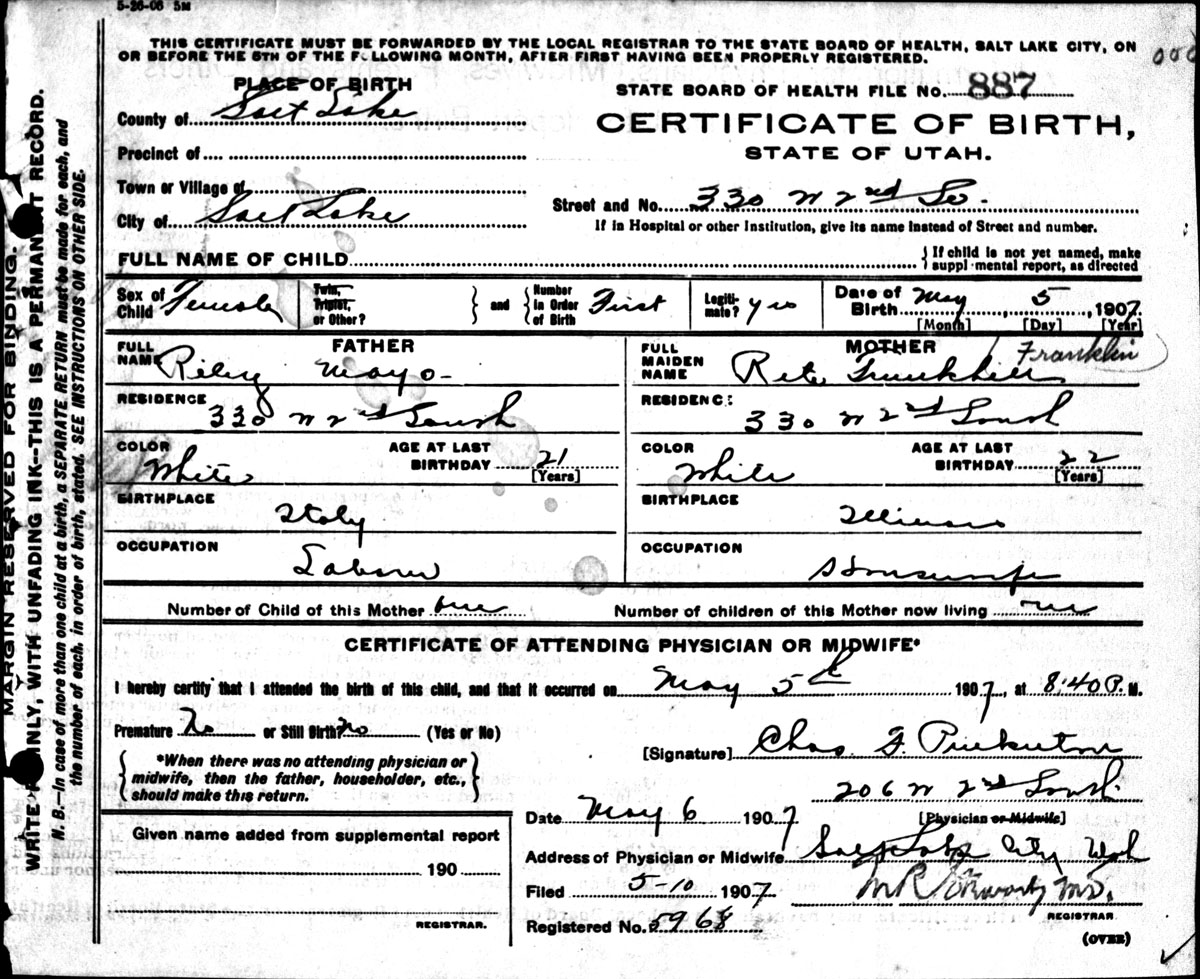 5-26-06 5M
THIS CERTIFICATE MUST BE FORWARDED BY THE LOCAL REGISTRAR TO THE STATE BOARD OF HEALTH, SALT LAKE CITY, ON
OR BEFORE THE 5TH OF THE FOLLOWING MONTH, AFTER FIRST HAVING BEEN PROPERLY REGISTERED.
PLACE OF BIRTH
STATE BOARD OF HEALTH FILE NO. 887
County of Salt Lake
CERTIFICATE OF BIRTH,
Precinct of
STATE OF UTAH.
Town or Village of
Street and No. 330 W 2nd So.
City of Salt Lake
If in Hospital or other Institution, give its name instead of Street and number.
FULL NAME OF CHILD
If child is not yet named, make
supplmental report, as directed
Sex of Child Female
Twin, Triplet, or Other?
and
Number in Order of Birth First
Legiti-mate? yes
Date of Birth May 5, 1907
[Month] [Day] [Year]
FATHER
FULL NAME Riley Mayo
RESIDENCE 330 W 2nd South
COLOR White
AGE AT LAST BIRTHDAY 21 [Years]
BIRTHPLACE Italy
OCCUPATION Laborer
MOTHER
FULL MAIDEN NAME Rita Franklin
RESIDENC: 330 W 2nd South
COLOR White
AGE AT LAST BIRTHDAY 22 [Years]
BIRTHPLACE Illinois
OCCUPATION Housewife
Number of Child of this Mother one
Number of children of this Mother now living one
CERTIFICATE OF ATTENDING PHYSICIAN OR MIDWIFE*
I hereby certify that I attended the birth of this child, and that it occurred on May 5th 1907, at 8:40 P. M.
Premature No or Still Birth? No (Yes or No)
*When there was no attending physician or
midwife, then the father, householder, etc.,
should make this return.
[Signature] Chas. F. Pinkerton
206 W 2nd South
[Physician or Midwife]
Date May 6 1907
Address of Physician or Midwife Salt Lake City Utah
Given name added from supplemental report
190
REGISTRAR.
Filed 5-10 1907
M R M.D.
REGISTRAR
Registered No. 5968
(OVER)
MARGIN RESERVED FOR BINDING.
WRITE PLAINLY, WITH UNFADING INK--THIS IS A PERMANENT RECORD.
N. B.--In case of more than one child at a birth, a SEPARATE RETURN must be made for each, and
the number of each, in order of birth, stated. SEE INSTRUCTIONS ON OTHER SIDE.